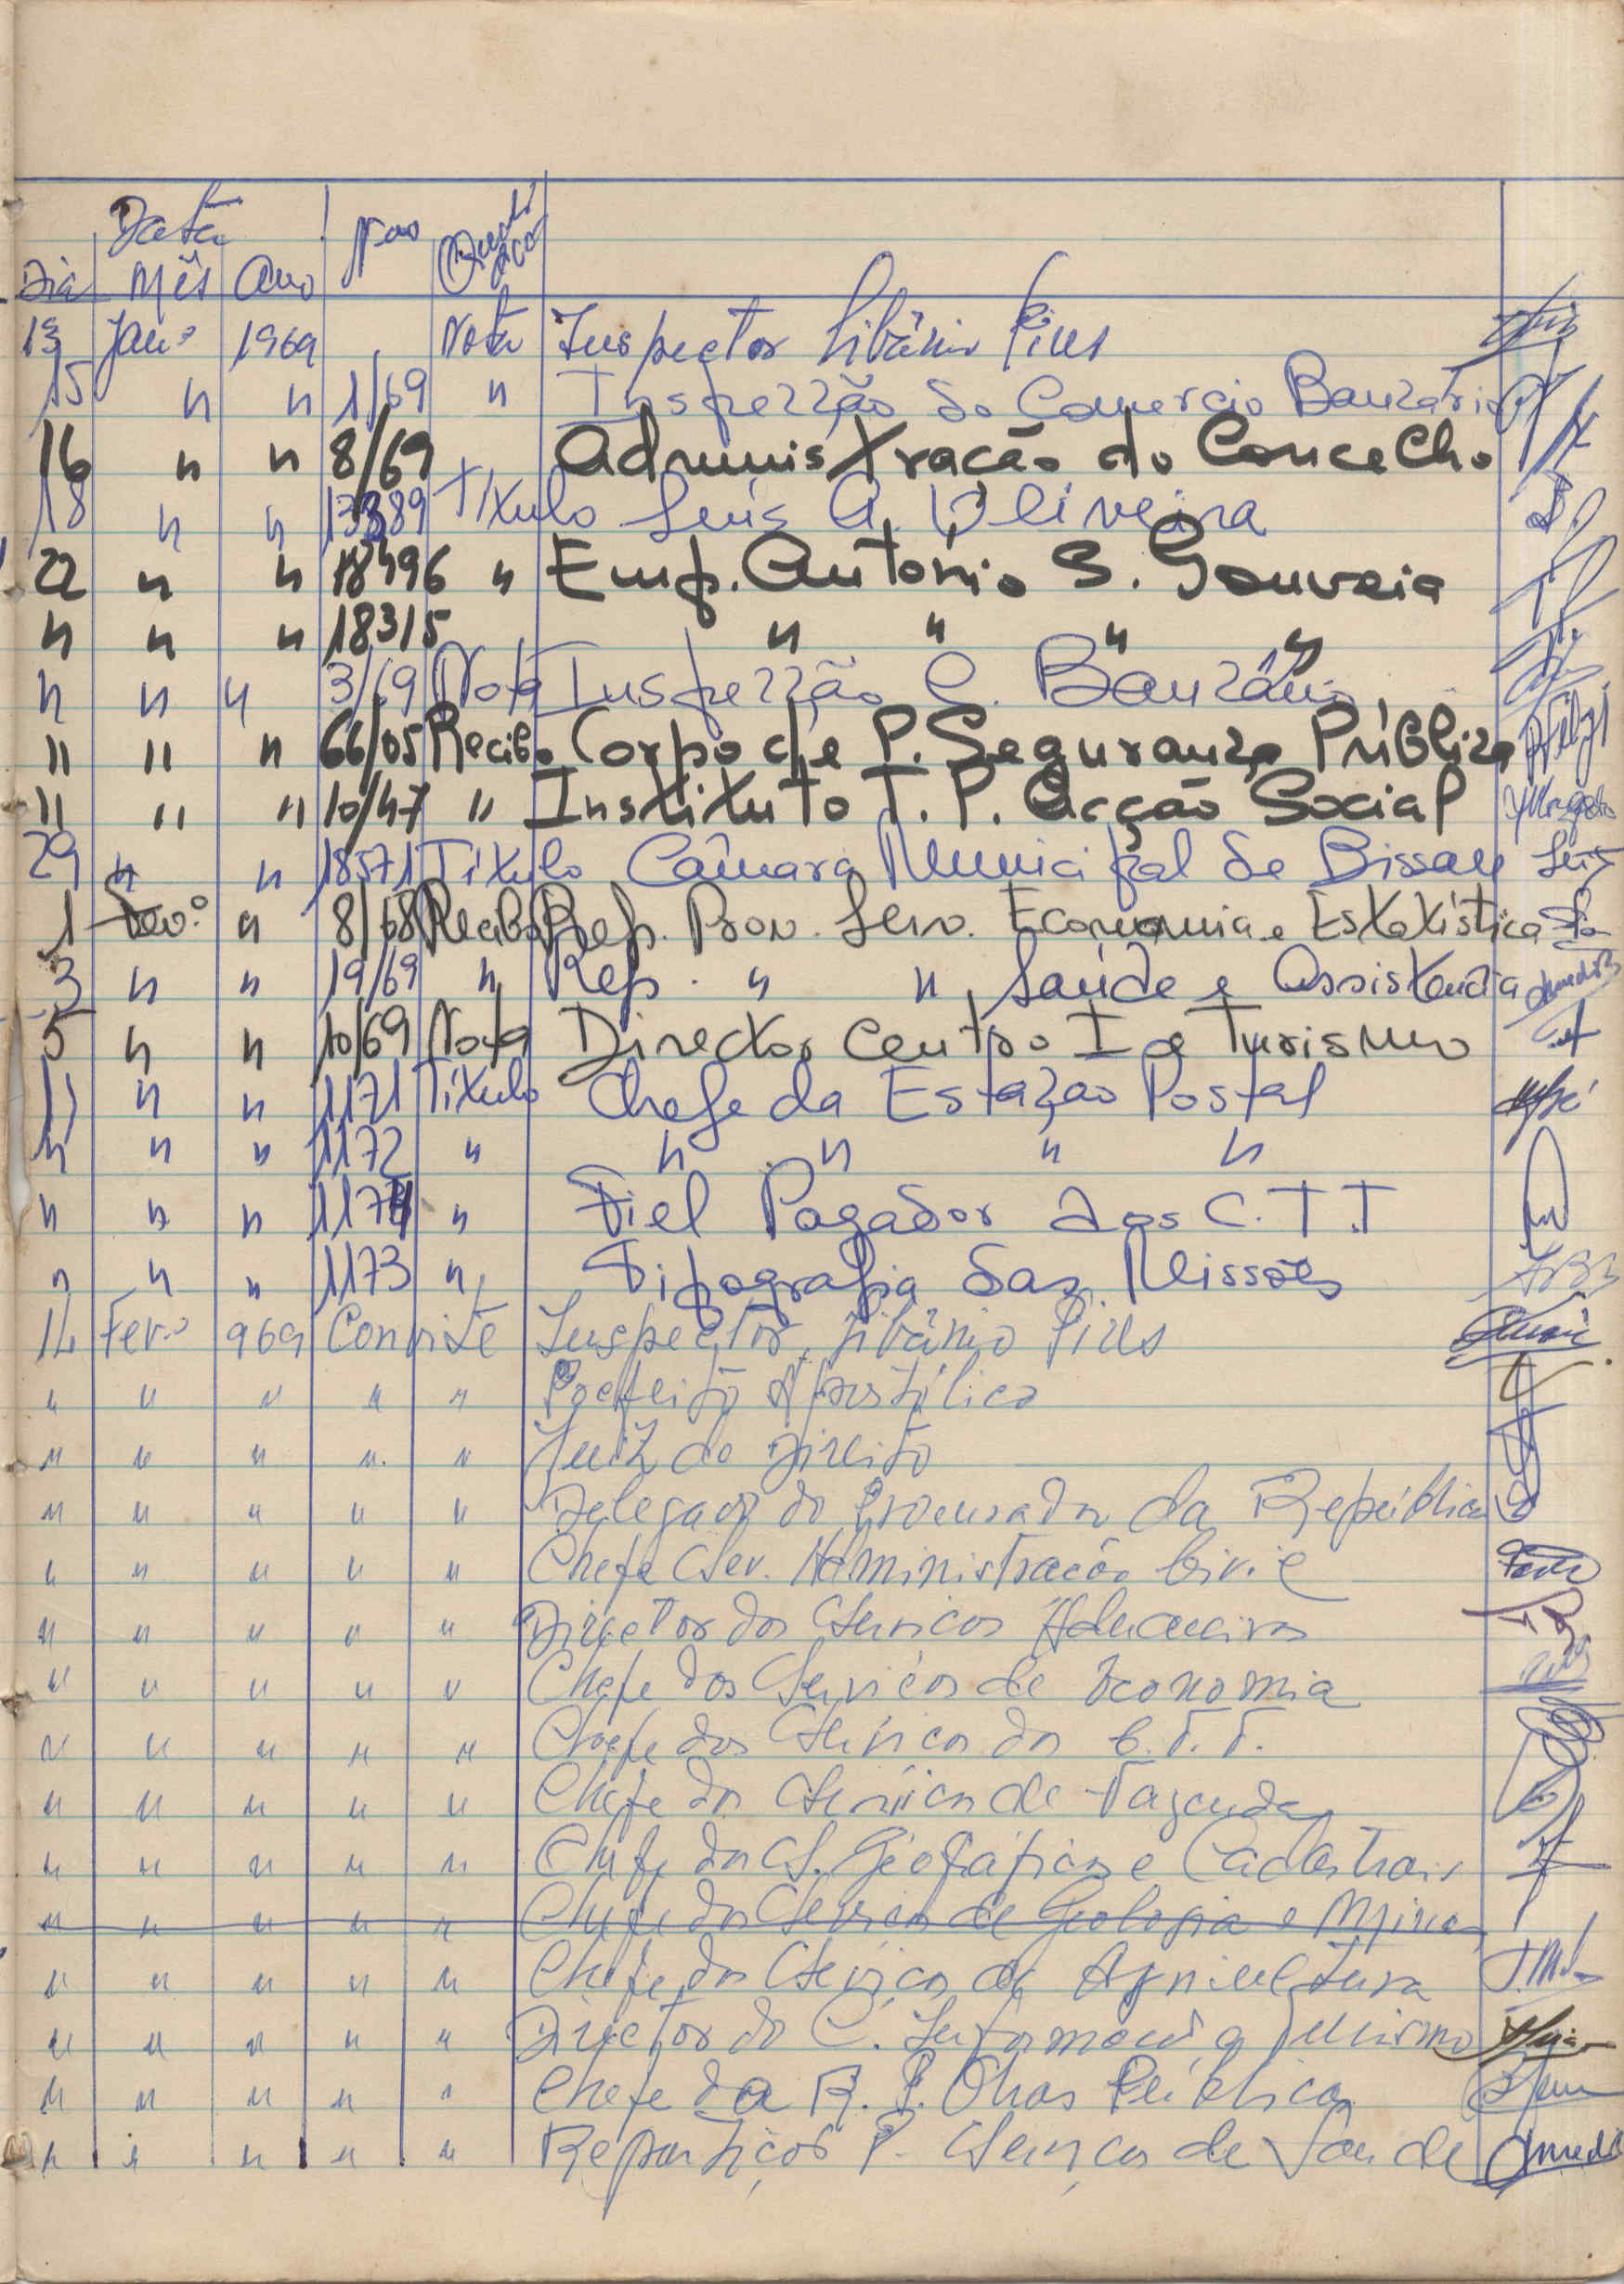 Data Nºo
Dia Mês Ano
13 Janº 1969 Nota Inspector Libânio Pires
15 " " 1/69 " Inspecção do Comercio Bancário
16 " " 8/69 Administração do Concelho
18 " " 13389 Título Luís A. Oliveira
22 " " 18496 " Emp. António S. Gouveia
" " " 18315 " " " "
" " " 3/69 Nota Inspecção C. Bancário
" " " 66/05 Recibo Corpo de P. Segurança Pública
" " " 10/47 " Instituto T. P. Acção Social
29 " " 18571 Título Câmara Municipal de Bissau
1 Fevº " 8/68 Recibo Rep. Prov. Serv. Economia e Estatística
3 " " 19/69 " Rep. " " Saúde e Assistência
5 " " 10/69 Nota Director Centro I e Turismo
11 " " 1171 Título Chefe da Estação Postal
" " " 1172 " " " " "
" " " 1174 " Fiel Pagador dos C.T.T
" " " 1173 " Tipografia das Missões
14 Fevº 969 Convite Inspector Libânio Pires
" " " " " Prefeito Apostólico
" " " " " Juiz de Direito
" " " " " Delegado do Procurador da República
" " " " " Chefe Ser. Administração Civil
" " " " " Director dos Serviços Aduaneiros
" " " " " Chefe dos Serviços de Economia
" " " " " Chefe dos Serviços dos C.T.T.
" " " " " Chefe dos Serviços de Fazenda
" " " " " Chefe dos S. Geográficos e Cadastrais
" " " " " Chefe dos Serviços de Geologia e Minas
" " " " " Chefe dos Serviços de Agricultura
" " " " " Director do C. Informação Turismo
" " " " " Chefe da R. P. Obras Públicas
" " " " " Repartição P. Serviços de Saúde